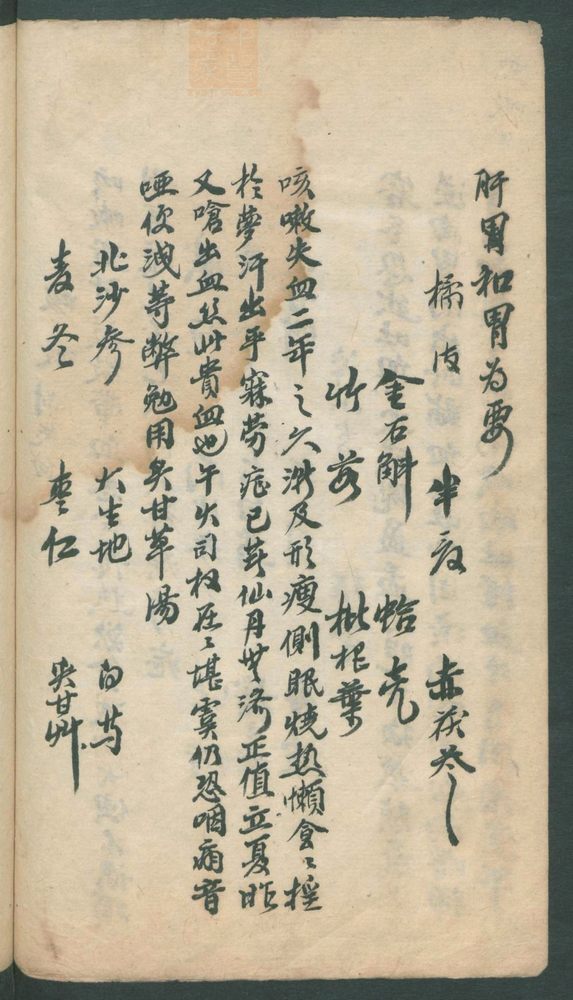 肝胃和胃为要
橘皮 半夏 赤茯苓
金石斛 蛤壳
竹茹 枇杷葉
咳嗽失血二年之久漸及形瘦側眠燒熱懶食〻
於夢汗出乎寐勞症已莳仙丹無濟正值立夏昨
又嗆出血絲此貴血也午火司权在〻堪虞仍恐咽痛音
哑便洩等弊勉用炙甘草湯
北沙參 大生地 白芍
麦冬 棗仁 炙甘艸